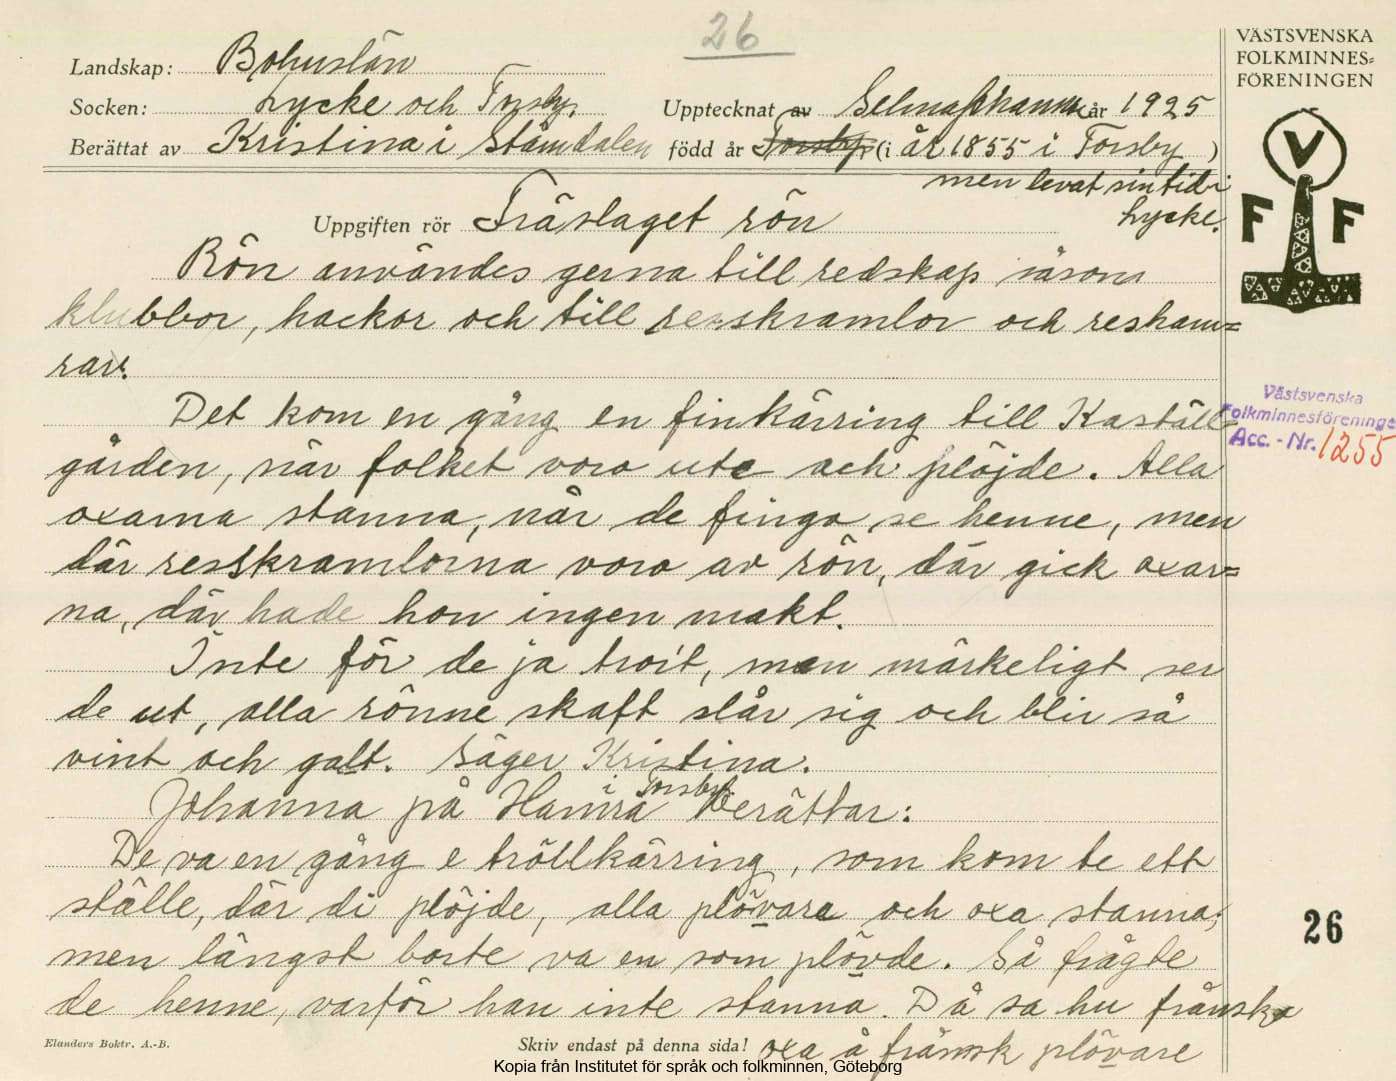 26
VÄSTSVENSKA
FOLKMINNES=
FÖRENINGEN
Landskap: Bohuslän
Socken: Lycke och Torsby.
Upptecknat av Selma Johansson år 1925
Berättat av Kristina i Stämdalen född år Torsby, (i år 1855 i Torsby)
men levat sin tid i
Lycke.
V
F F
Uppgiften rör Träslaget rön
Rön användes gerna till redskap såsom
klubbor, hackor och till resskramlor och resham=
rar.
Det kom en gång en finkärring till Kaställ=
gården, när folket voro ute och plöjde. Alla
oxarna stanna, när de fingo se henne, men
där resskramlorna voro av rön, där gick oxar=
na, där hade hon ingen makt.
Inte för de ja trot, men märkeligt ser
de ut, alla rönne skaft slår sig och blir så
vint och galt. Säger Kristina.
Johanna på Hamra i Torsby berättar:
De va en gång e tröllkärring, som kom te ett
ställe, där di plöjde, alla plövara och oxa stanna;
men längst borte va en som plövde. Så frågte
de henne, varför han inte stanna. Då sa hu frånsk
oxa å frånsk plövare
Västsvenska
Folkminnesföreninge
Acc. - Nr. 1255
26
Elanders Boktr. A.-B.
Skriv endast på denna sida!
Kopia från Institutet för språk och folkminnen, Göteborg